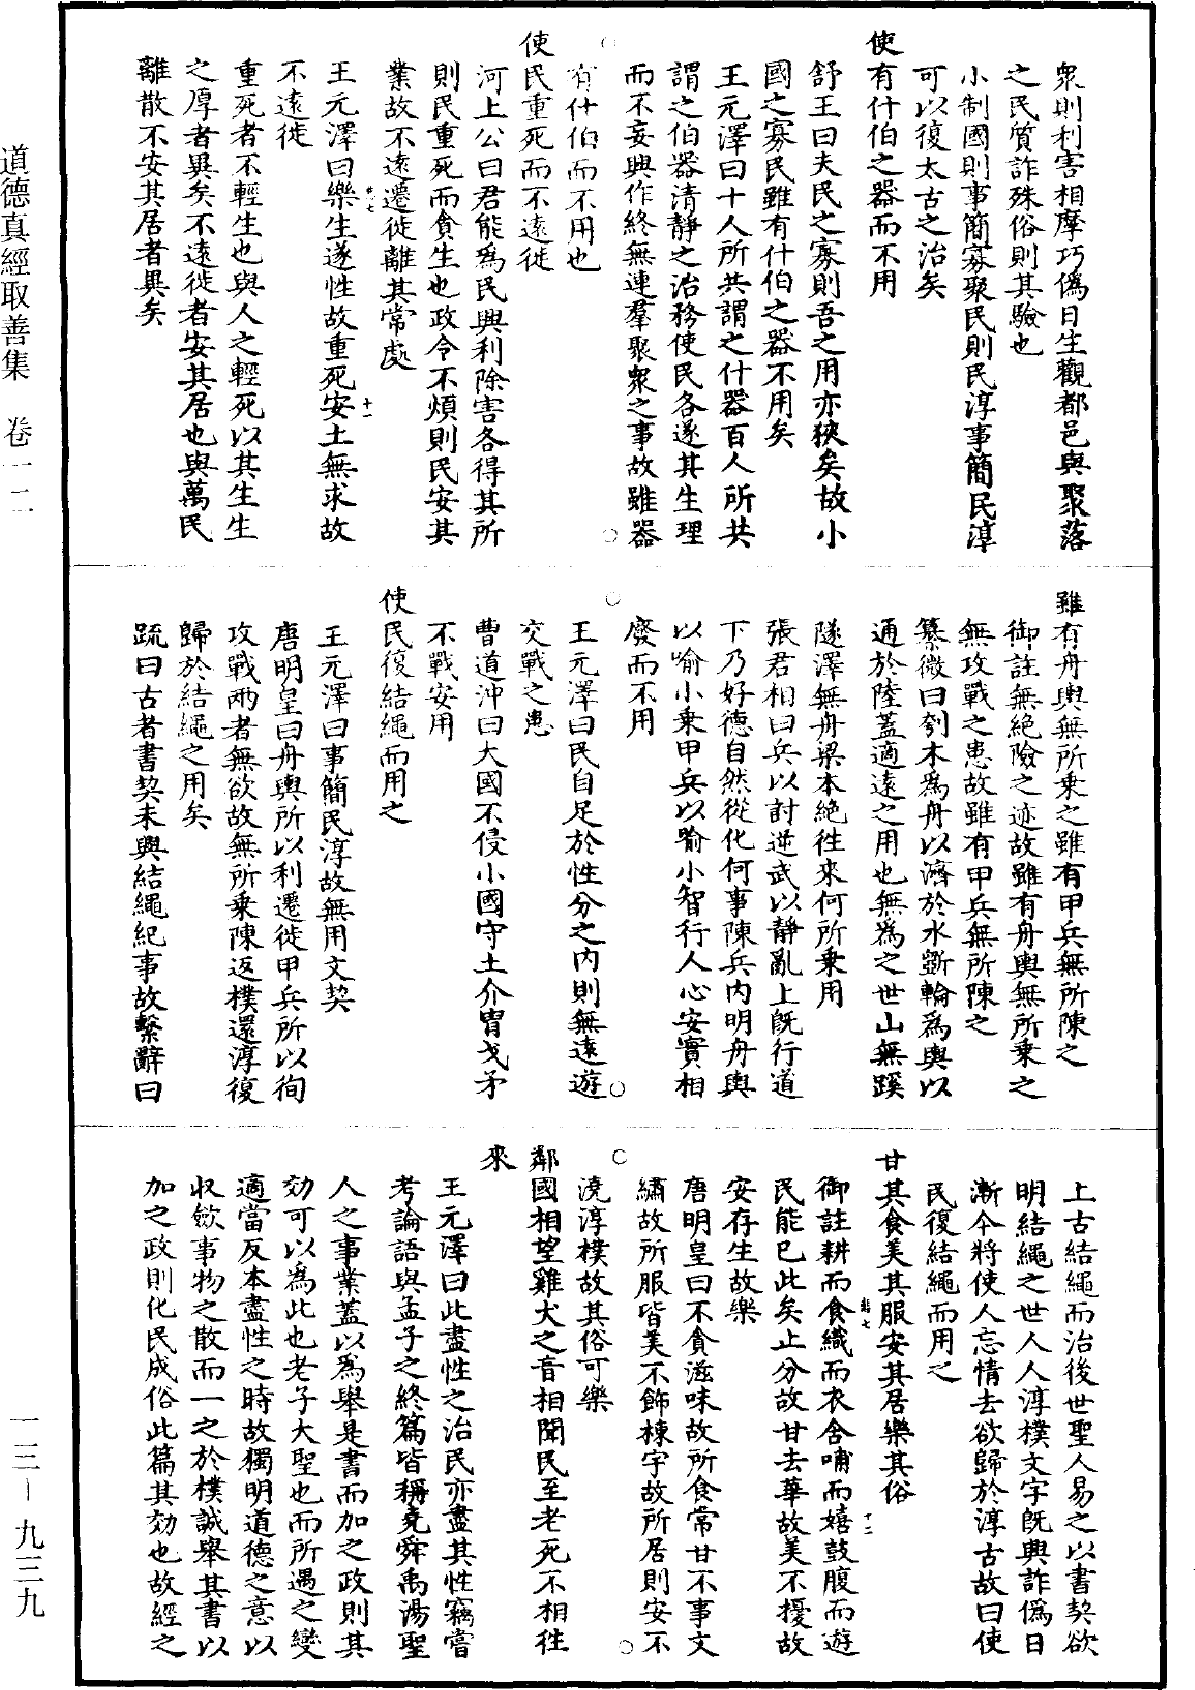 衆則利害相摩巧僞日生觀都邑與聚落
之民質詐殊俗則其驗也
小制國則事簡寡聚民則民淳事簡民淳
可以復太古之治矣
使有什伯之器而不用
舒王曰夫民之寡則吾之用亦狹矣故小
國之寡民雖有什伯之器不用矣
王元澤曰十人所共謂之什器百人所共
謂之伯器清靜之治務使民各遂其生理
而不妄興作終無連羣聚衆之事故雖器
有什伯而不用也
使民重死而不遠徙
河上公曰君能爲民興利除害各得其所
則民重死而貪生也政令不煩則民安其
業故不遠遷徙離其常處
王元澤曰樂生遂性故重死安土無求故
不遠徙
重死者不輕生也與人之輕死以其生生
之厚者異矣不遠徙者安其居也與萬民
離散不安其居者異矣
雖有舟輿無所乘之雖有甲兵無所陳之
御註無絕險之迹故雖有舟輿無所乘之
無攻戰之患故雖有甲兵無所陳之
纂微曰刳木爲舟以濟於水斵輪爲輿以
通於陸蓋適遠之用也無爲之世山無蹊
隧澤無舟梁本絕徃來何所乘用
張君相曰兵以討逆武以靜亂上既行道
下乃好德自然從化何事陳兵內明舟輿
以喻小乘甲兵以喻小智行人心安實相
廢而不用
王元澤曰民自足於性分之內則無遠遊
交戰之患
曹道沖曰大國不侵小國守土介胄戈矛
不戰安用
使民復結繩而用之
王元澤曰事簡民淳故無用文契
唐明皇曰舟輿所以利遷徙甲兵所以徇
攻戰兩者無欲故無所乘陳返樸還淳復
歸於結繩之用矣
疏曰古者書契未興結繩紀事故繫辭曰
上古結繩而治後世聖人易之以書契欲
明結繩之世人人淳樸文字既興詐僞日
漸今將使人忘情去欲歸於淳古故曰使
民復結繩而用之
甘其食美其服安其居樂其俗
御註耕而食織而衣含哺而嬉鼓腹而遊
民能已此矣止分故甘去華故美不擾故
安存生故樂
唐明皇曰不貪滋味故所食常甘不事文
繡故所服皆美不飾棟宇故所居則安不
澆淳樸故其俗可樂
鄰國相望雞犬之音相聞民至老死不相徃
來
王元澤曰此盡性之治民亦盡其性竊嘗
考論語與孟子之終篇皆稱堯舜禹湯聖
人之事業蓋以爲舉是書而加之政則其
効可以爲此也老子大聖也而所遇之變
適當反本盡性之時故獨明道德之意以
収斂事物之散而一之於樸誠舉其書以
加之政則化民成俗此篇其効也故經之
道德真經取善集　卷一二
一三－九三九